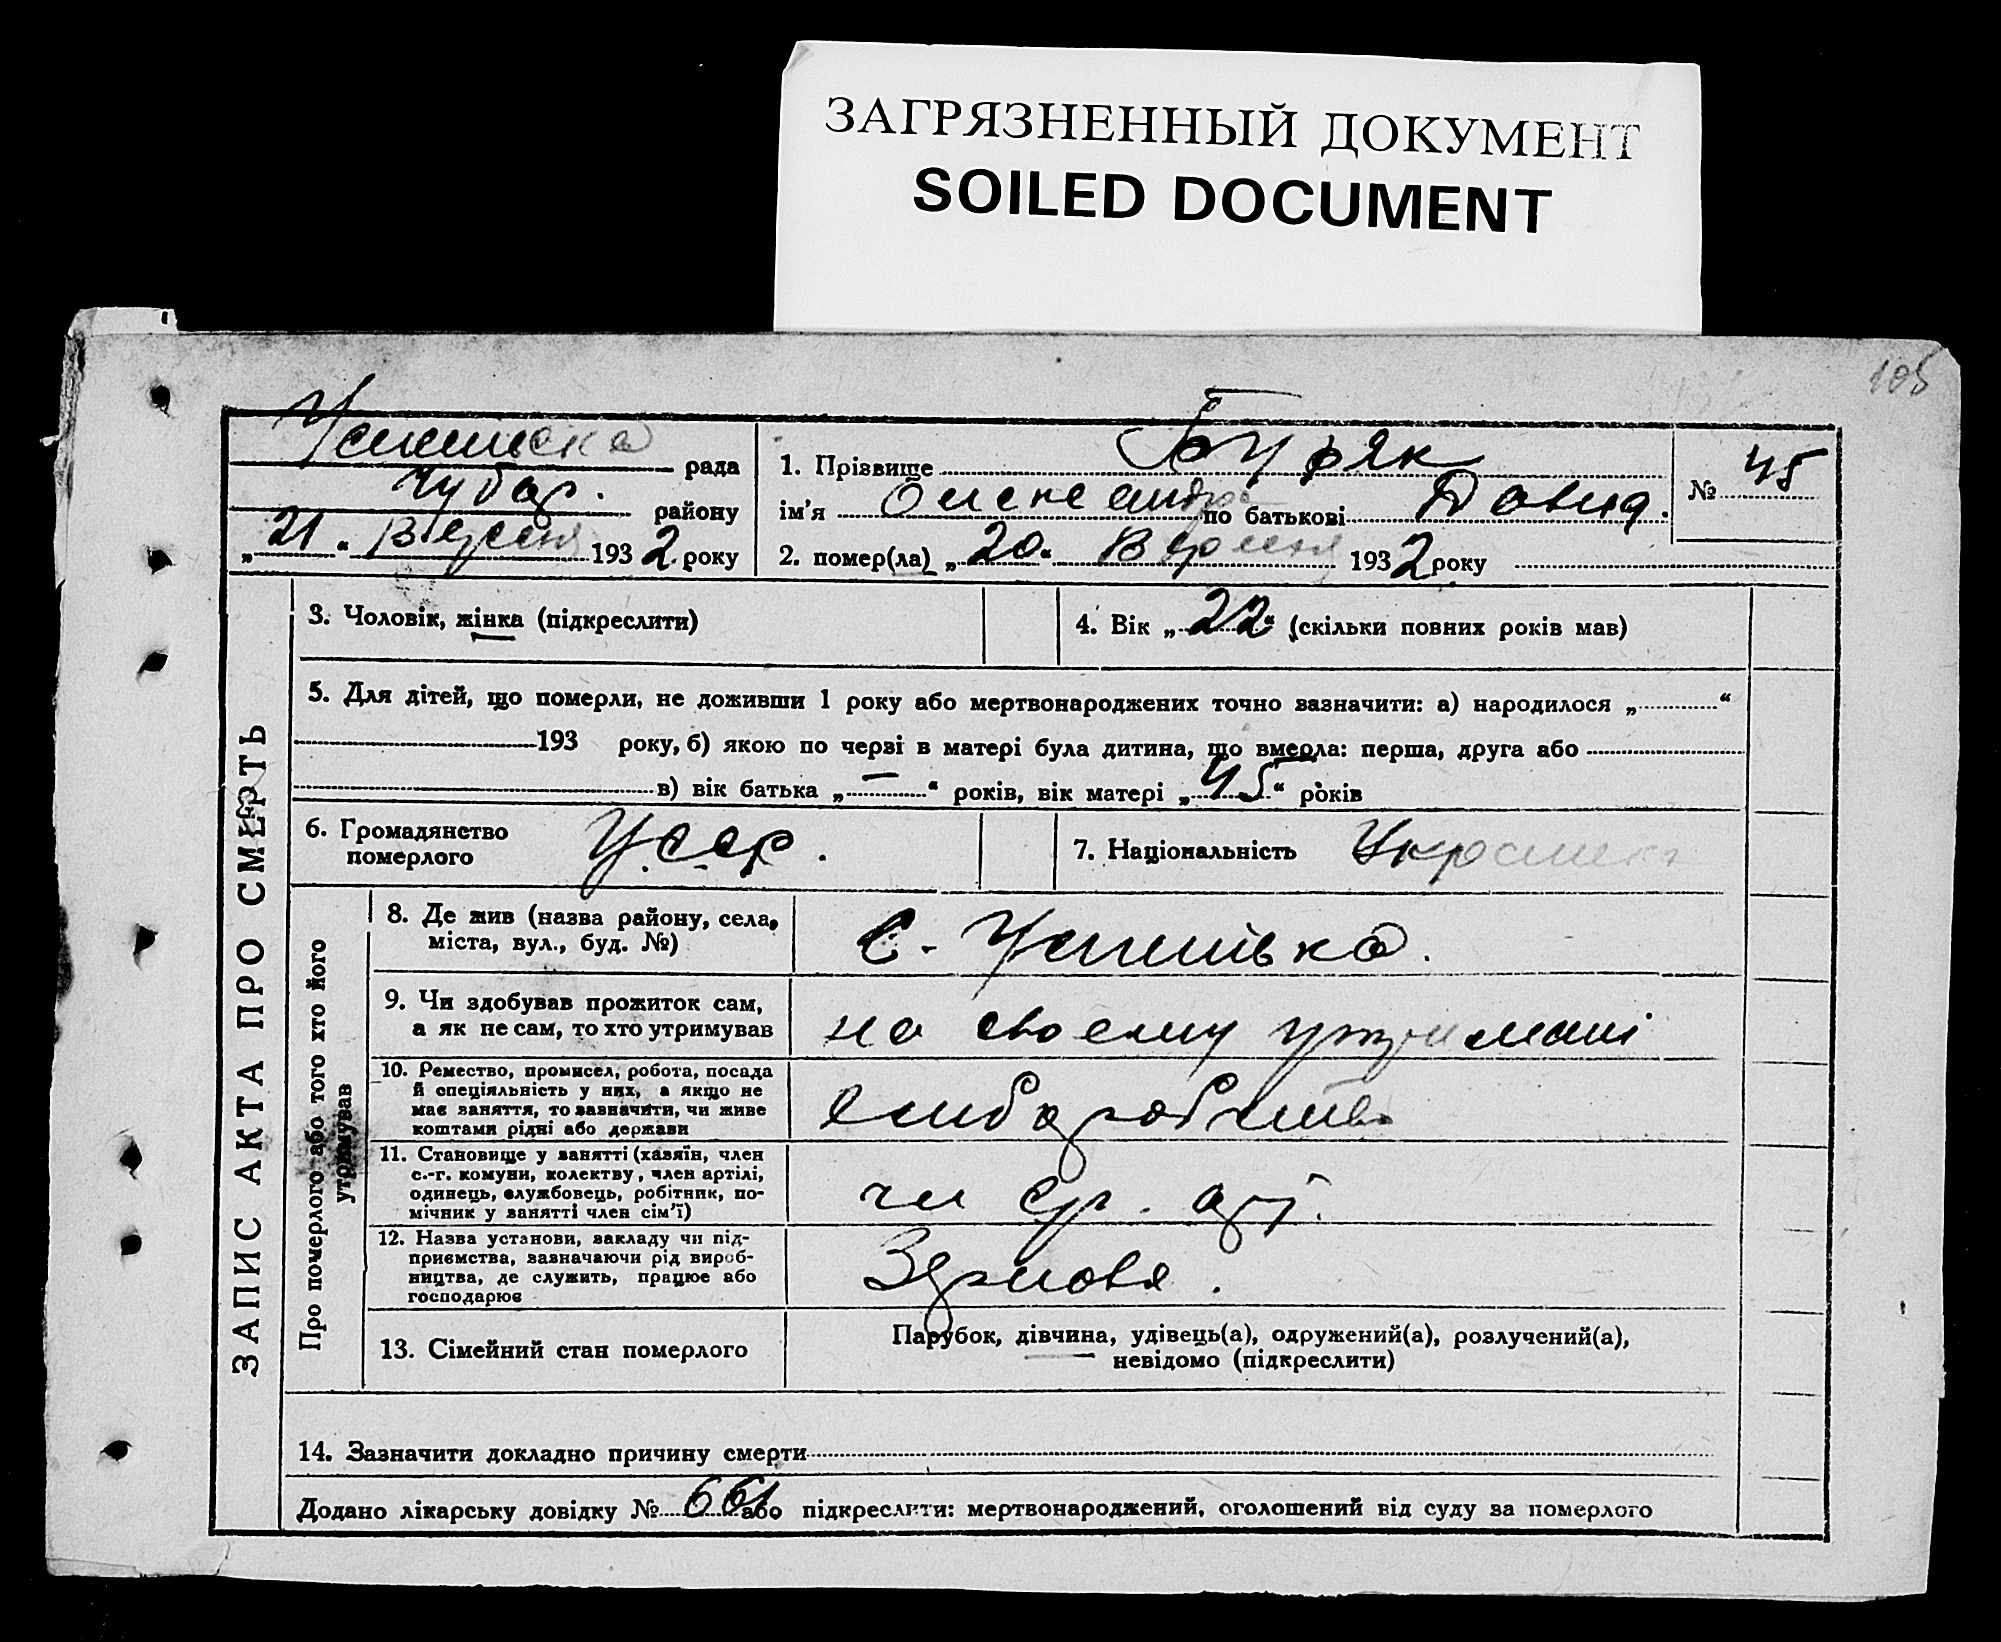 ЗАГРЯЗНЕННЫЙ ДОКУМЕНТ
SOILED DOCUMENT
105
рада
Чубар. району
„21“ Вересня 1932 року
1. Прізвище Буряк
ім'я Олександра по батькові Давид.
№ 45
2. помер(ла) „20“ Вересня 1932 року
ЗАПИС АКТА ПРО СМЕРТЬ
3. Чоловік, жінка (підкреслити)
4. Вік „22“ (скільки повних років мав)
5. Для дітей, що померли, не доживши 1 року або мертвонароджених точно зазначити: а) народилося „ “
193 року, б) якою по черзі в матері була дитина, що вмерла: перша, друга або
в) вік батька „—“ років, вік матері „45“ років
6. Громадянство померлого УССР.
7. Національність Українка
Про померлого або того хто його утримував
8. Де жив (назва району, села,
міста, вул., буд. №)
С. Успенівка.
9. Чи здобував прожиток сам,
а як не сам, то хто утримував
на своєму утриманні
10. Ремество, промисел, робота, посада
й спеціяльність у них, а якщо не
має заняття, то зазначити, чи живе
коштами рідні або держави
11. Становище у занятті (хазяїн, член
с.-г. комуни, колектву, член артілі,
одинець, службовець, робітник, по-
мічник у занятті член сім'ї)
арт.
12. Назва установи, закладу чи під-
приємства, зазначаючи рід вироб-
ництва, де служить, працює або
господарює
Зернова.
13. Сімейний стан померлого
Парубок, дівчина, удівець(а), одружений(а), розлучений(а),
невідомо (підкреслити)
14. Зазначити докладно причину смерти
Додано лікарську довідку № 661 або підкреслити: мертвонароджений, оголошений від суду за померлого